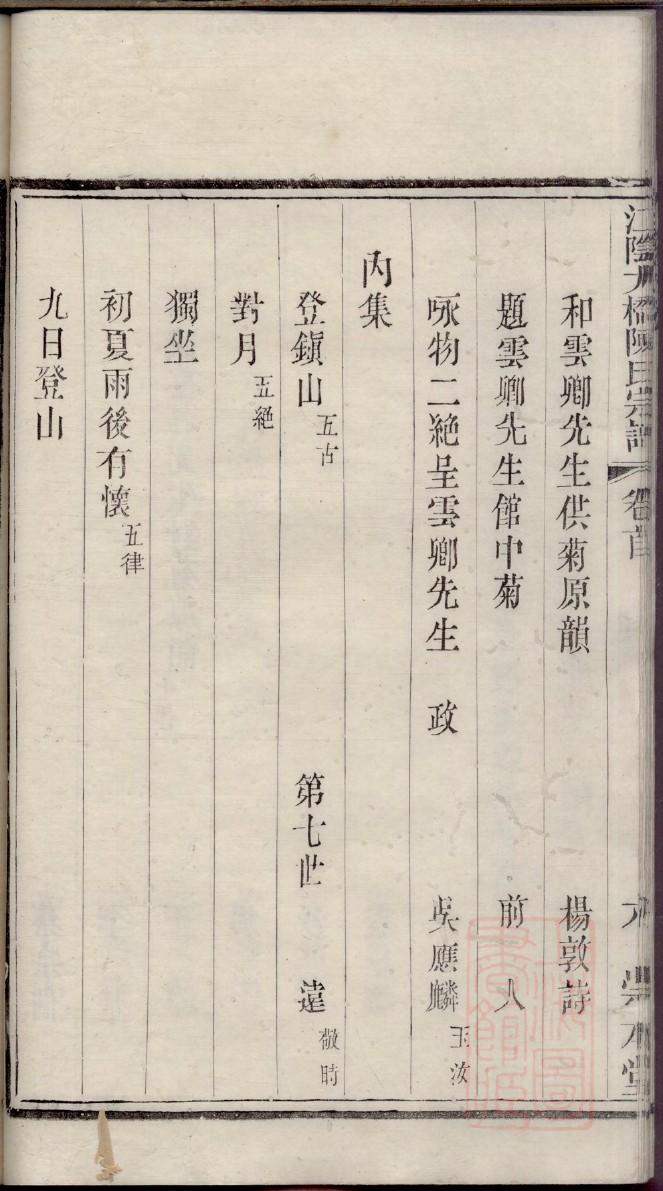 江陰九橋陳氏宗譜 卷首 崇本堂
和雲卿先生供菊原韻 楊敦詩
題雲卿先生館中菊 前人
咏物二絶呈雲卿先生 政 吳應麟 玉汝
內集
登鎭山 五古 第七世 遠 敬時
對月 五絶
獨坐
初夏雨後有懷 五律
九日登山